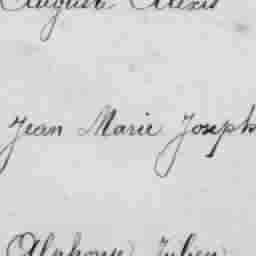 August Alexis
Jean Marie Joseph
Alphonse Julien